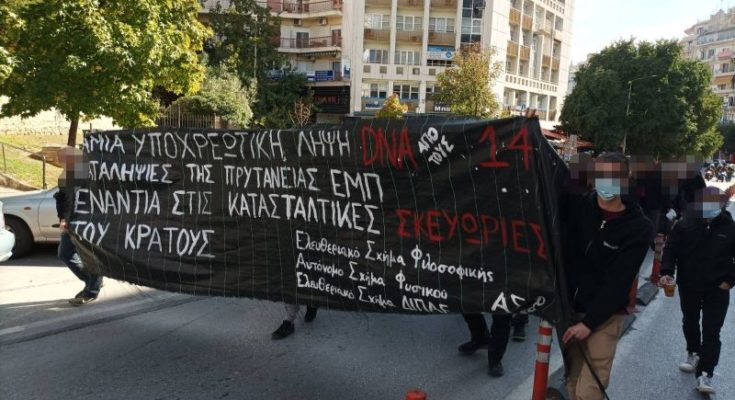 ΚΑΜΙΑ ΥΠΟΧΡΕΩΤΙΚΗ ΛΗΨΗ DNA ΑΠΟ ΤΟΥΣ 14
ΚΑΤΑΛΗΨΙΕΣ ΤΗΣ ΠΡΥΤΑΝΕΙΑΣ ΕΜΠ
ΕΝΑΝΤΙΑ ΣΤΙΣ ΚΑΤΑΣΤΑΛΤΙΚΕΣ ΣΚΕΥΩΡΙΕΣ
ΤΟΥ ΚΡΑΤΟΥΣ
Ελευθεριακό Σχήμα Φιλοσοφικής
Αυτόνομο Σχήμα Φυσικού
Ελευθεριακό Σχήμα ΔΙΠΑΕ